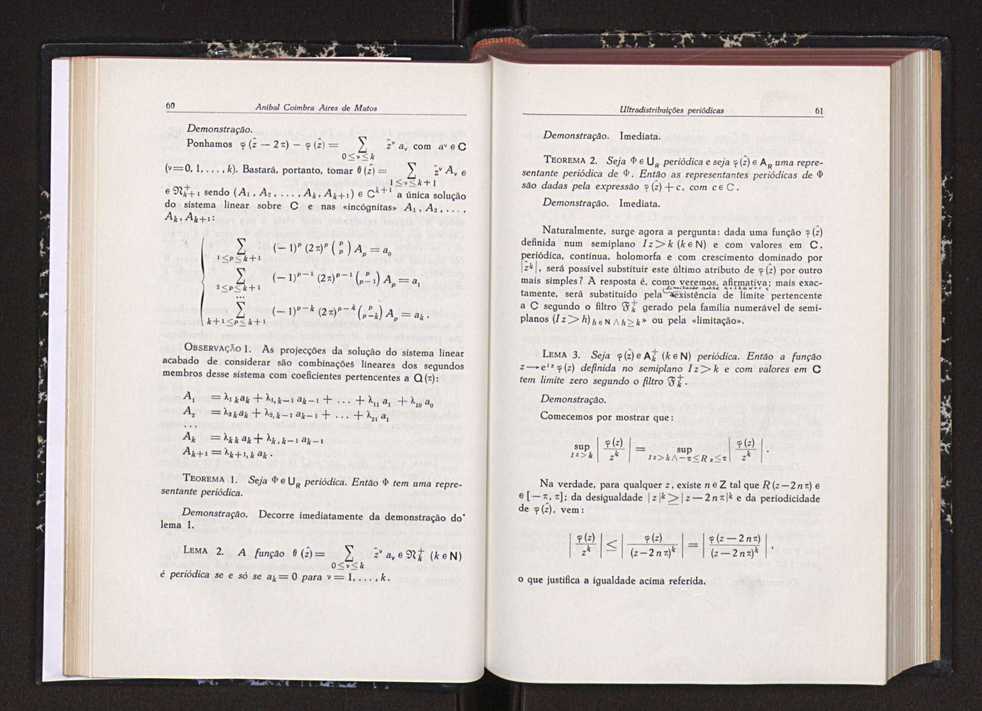 60 Aníbal Coimbra Aires de Matos
Demonstração.
Ponhamos φ (ẑ − 2π) − φ (ẑ) = ∑ ẑ^ν a_ν com a^ν ∈ C
0≤ν≤k
(ν=0, 1, . . . , k). Bastará, portanto, tomar θ (ẑ) = ∑ ẑ^ν A_ν ∈
1≤ν≤k+1
∈ 𝔑⁺_{k+1} sendo (A₁, A₂, . . . , A_k, A_{k+1}) ∈ C^{k+1} a única solução
do sistema linear sobre C e nas «incógnitas» A₁, A₂, . . . ,
A_k, A_{k+1}:
∑ (−1)^p (2π)^p (p p) A_p = a₀
1≤p≤k+1
∑ (−1)^{p−1} (2π)^{p−1} (p p−1) A_p = a₁
2≤p≤k+1
...
∑ (−1)^{p−k} (2π)^{p−k} (p p−k) A_p = a_k .
k+1≤p≤k+1
OBSERVAÇÃO 1. As projecções da solução do sistema linear
acabado de considerar são combinações lineares dos segundos
membros desse sistema com coeficientes pertencentes a Q (π):
A₁ = λ_{1k} a_k + λ_{1,k−1} a_{k−1} + . . . + λ₁₁ a₁ + λ₁₀ a₀
A₂ = λ_{2k} a_k + λ_{2,k−1} a_{k−1} + . . . + λ₂₁ a₁
. . .
A_k = λ_{kk} a_k + λ_{k,k−1} a_{k−1}
A_{k+1} = λ_{k+1,k} a_k .
TEOREMA 1. Seja Φ ∈ U_R periódica. Então Φ tem uma repre-
sentante periódica.
Demonstração. Decorre imediatamente da demonstração do
lema 1.
LEMA 2. A função θ (ẑ) = ∑ ẑ^ν a_ν ∈ 𝔑⁺_k (k ∈ N)
0≤ν≤k
é periódica se e só se a_k = 0 para ν = 1, . . . , k.
Ultradistribuições periódicas 61
Demonstração. Imediata.
TEOREMA 2. Seja Φ ∈ U_R periódica e seja φ (ẑ) ∈ A_R uma repre-
sentante periódica de Φ. Então as representantes periódicas de Φ
são dadas pela expressão φ (ẑ) + c, com c ∈ C.
Demonstração. Imediata.
Naturalmente, surge agora a pergunta: dada uma função φ (ẑ)
definida num semiplano Iz > k (k ∈ N) e com valores em C,
periódica, contínua, holomorfa e com crescimento dominado por
|ẑ^k|, será possível substituir este último atributo de φ (ẑ) por outro
mais simples? A resposta é, como veremos, afirmativa; mais exac-
tamente, será substituído pela existência de limite pertencente
a C segundo o filtro 𝔉⁺_k gerado pela família numerável de semi-
planos (Iz > h)_{h ∈ N ∧ h ≥ k}, ou pela «limitação».
LEMA 3. Seja φ (ẑ) ∈ A⁺_k (k ∈ N) periódica. Então a função
z → e^{iz} φ (z) definida no semiplano Iz > k e com valores em C
tem limite zero segundo o filtro 𝔉⁺_k.
Demonstração.
Comecemos por mostrar que:
sup | φ (z) / z^k | = sup | φ (z) / z^k | .
Iz>k Iz>k ∧ −π ≤ R z ≤ π
Na verdade, para qualquer z, existe n ∈ Z tal que R (z − 2 n π) ∈
∈ [− π, π]; da desigualdade | z |^k ≥ | z − 2 n π |^k e da periodicidade
de φ (ẑ), vem:
| φ (z) / z^k | ≤ | φ (z) / (z−2 n π)^k | = | φ (z − 2 n π) / (z − 2 n π)^k | ,
o que justifica a igualdade acima referida.